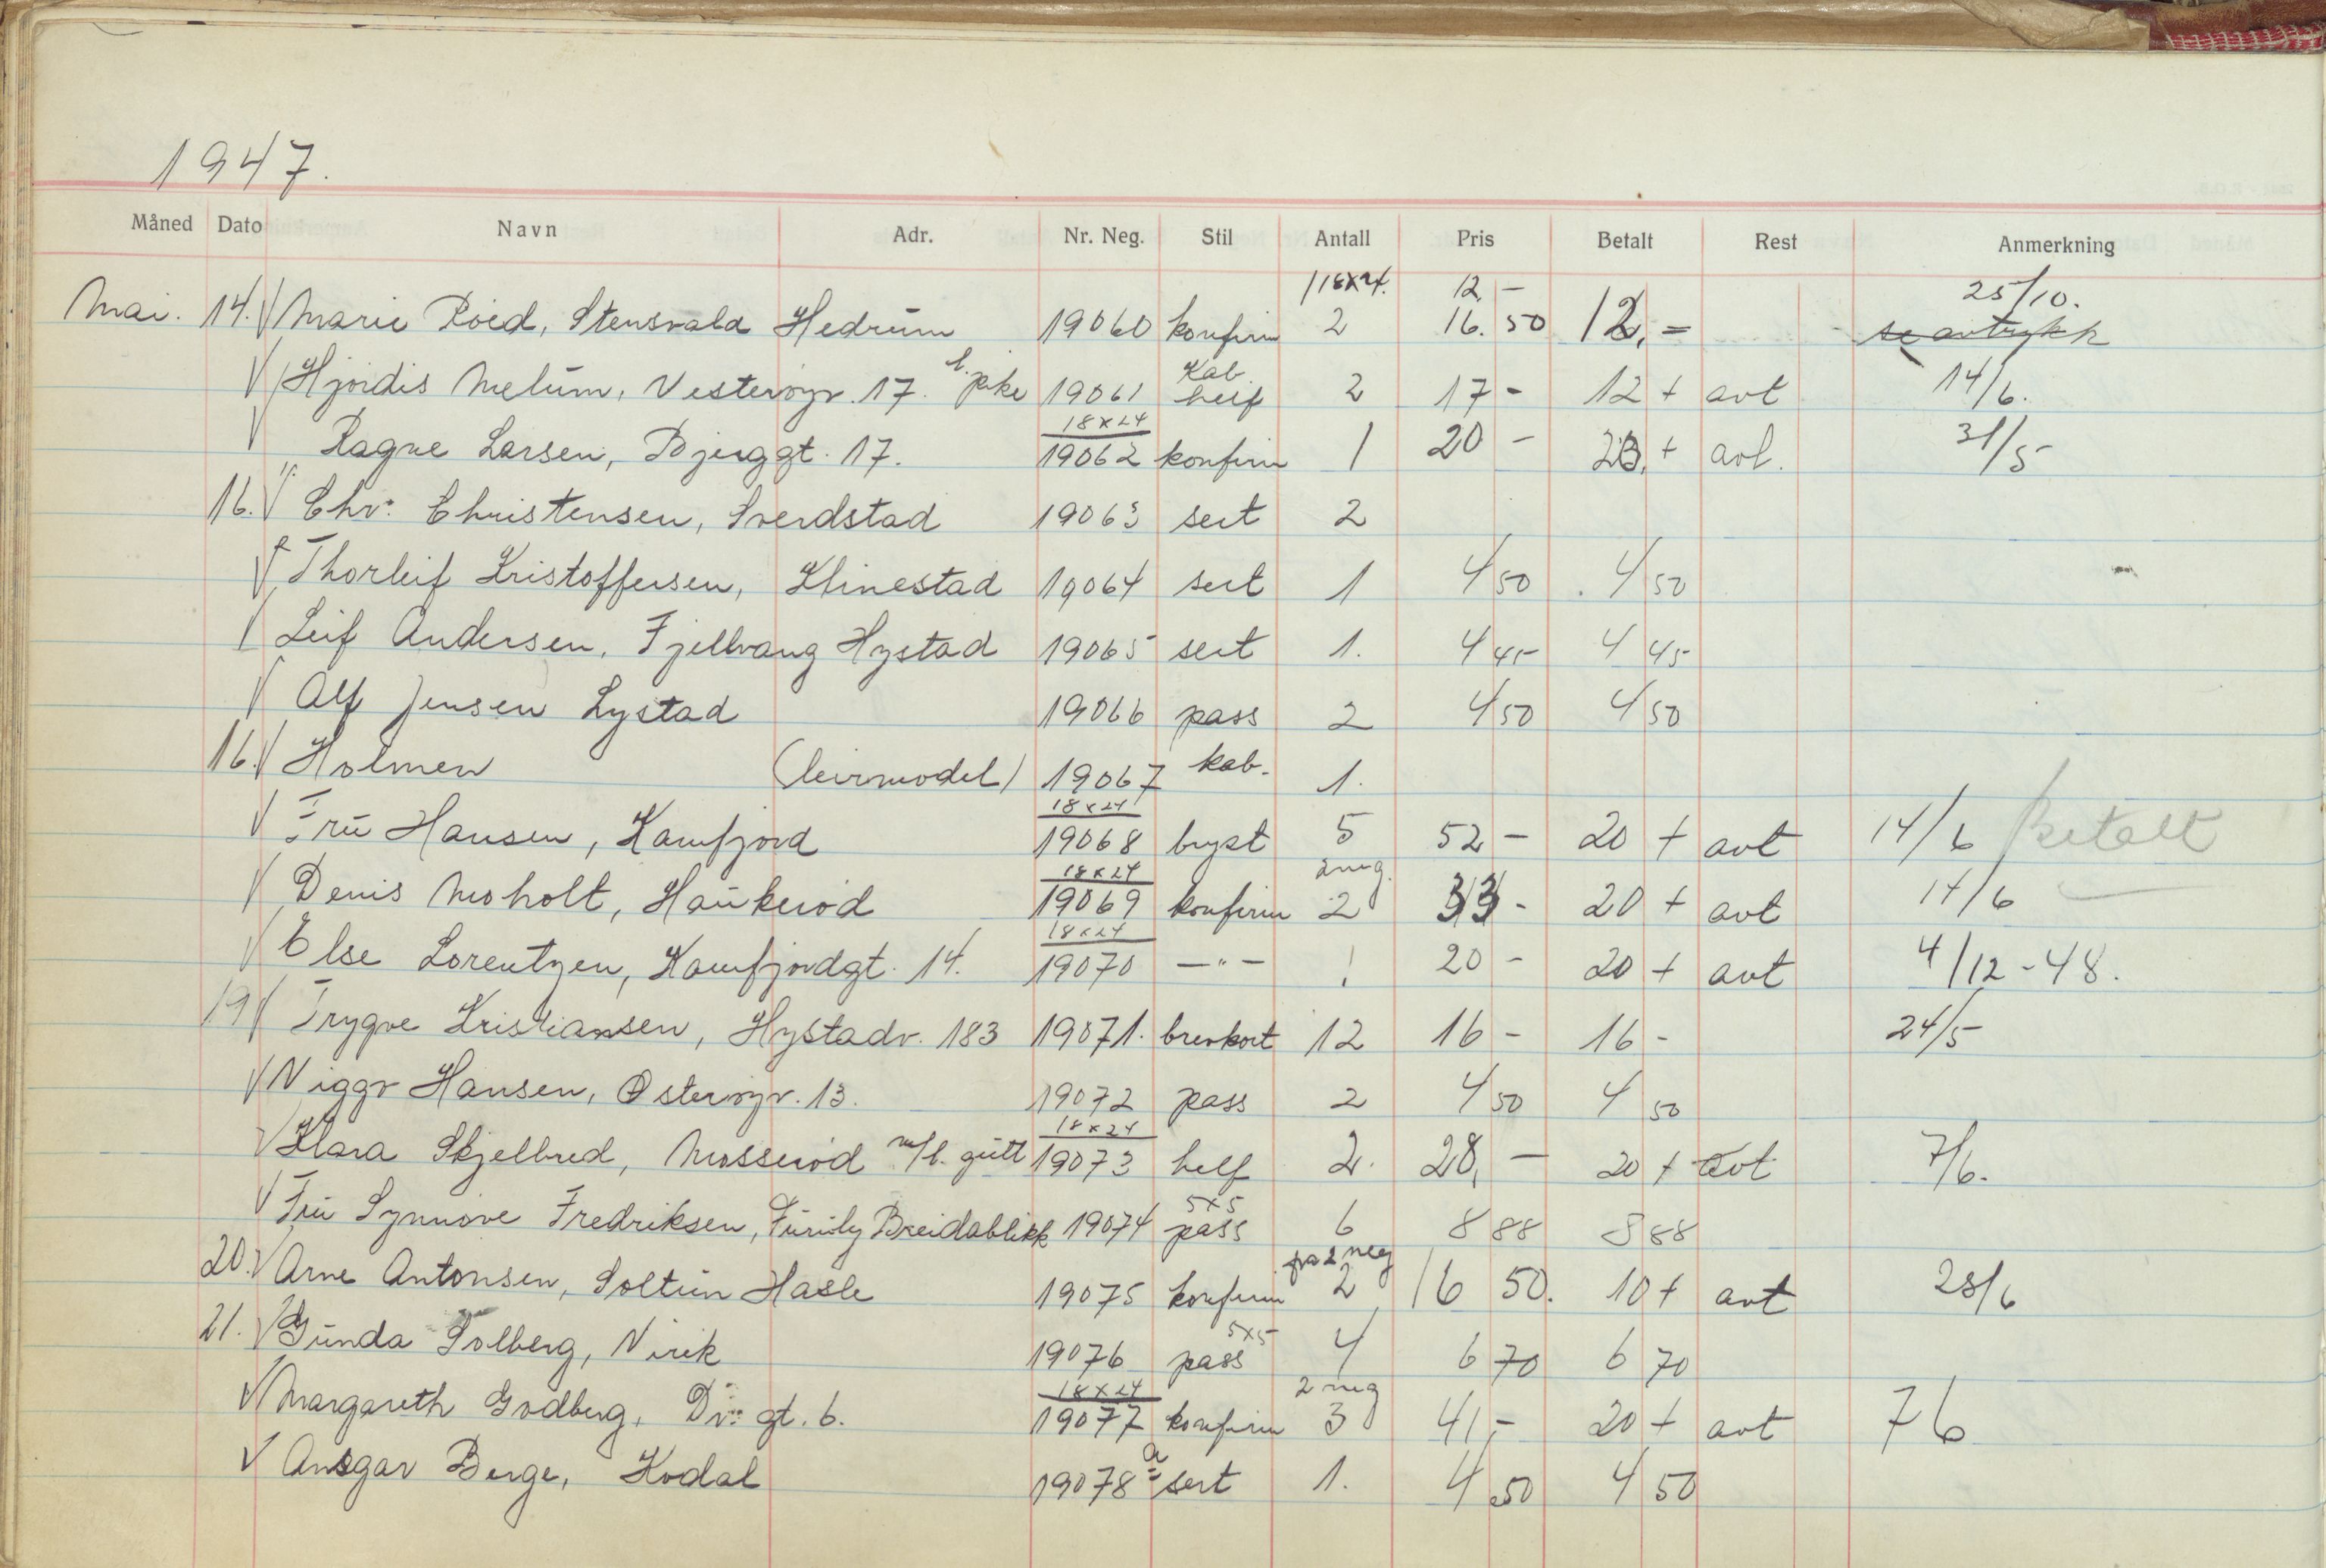 1947.
Måned Dato Navn Adr. Nr. Neg. Stil Antall Pris Betalt Rest Anmerkning
1 18x24. 12,- 25/10.
Mai. 14. Marie Röed, Stensvald Hedrum 19060 konfirm 2 16. 50 12,= se avtrykk
Hjördis Melum, Vesteröyv. 17. l. pike 19061 Kab helf 2 17 - 12 + avt 14/6.
Ragne Larsen, Bjerggt. 17. 18x24 19062 konfirm 1 20 - 20,+ avt. 31/5
16. Chr. Christensen, Sverdstad 19063 sert 2
Thorleif Kristoffersen, Klinestad 19064 sert 1 4 50 4 50
Leif Andersen, Fjellvang Hystad 19065 sert 1. 4 45 4 45
Alf Jensen Lystad 19066 pass 2 4 50 4 50
16. Holmen (leirmodel) 19067 kab. 1.
Fru Hansen, Kamfjord 18x24 19068 bryst 5 52 - 20 + avt 14/6 Betalt
Denis Moholt, Haukeröd 18x24 19069 konfirm 2 neg. 2 33 - 20 + avt 14/6
Else Lorentzen, Kamfjordgt. 14. 18x24 19070 —"— 1 20 - 20 + avt 4/12-48.
19 Trygve Kristiansen, Hystadv. 183 19071. brevkort 12 16 - 16 - 24/5
Viggo Hansen, Österöyv. 13. 19072 pass 2 4 50 4 50
Klara Skjelbred, Mosseröd m/l. gutt 18x24 19073 helf 2. 28,- 20 + avt 7/6.
Fru Synnöve Fredriksen, Furuly Breidablikk 19074 5x5 pass 6 8 88 8 88
20. Arne Antonsen, Soltun Hasle 19075 konfirm fra 2 neg 2 16 50. 10 + avt 28/6
21. Gunda Solberg, Virik 19076 5x5 pass 4 6 70 6 70
Margareth Godberg, Dr. gt. 6. 18x24 19077 konfirm 2 neg 3 41,- 20 + avt 7 6
Ansgar Berge, Kodal 19078 a sert 1. 4 50 4 50